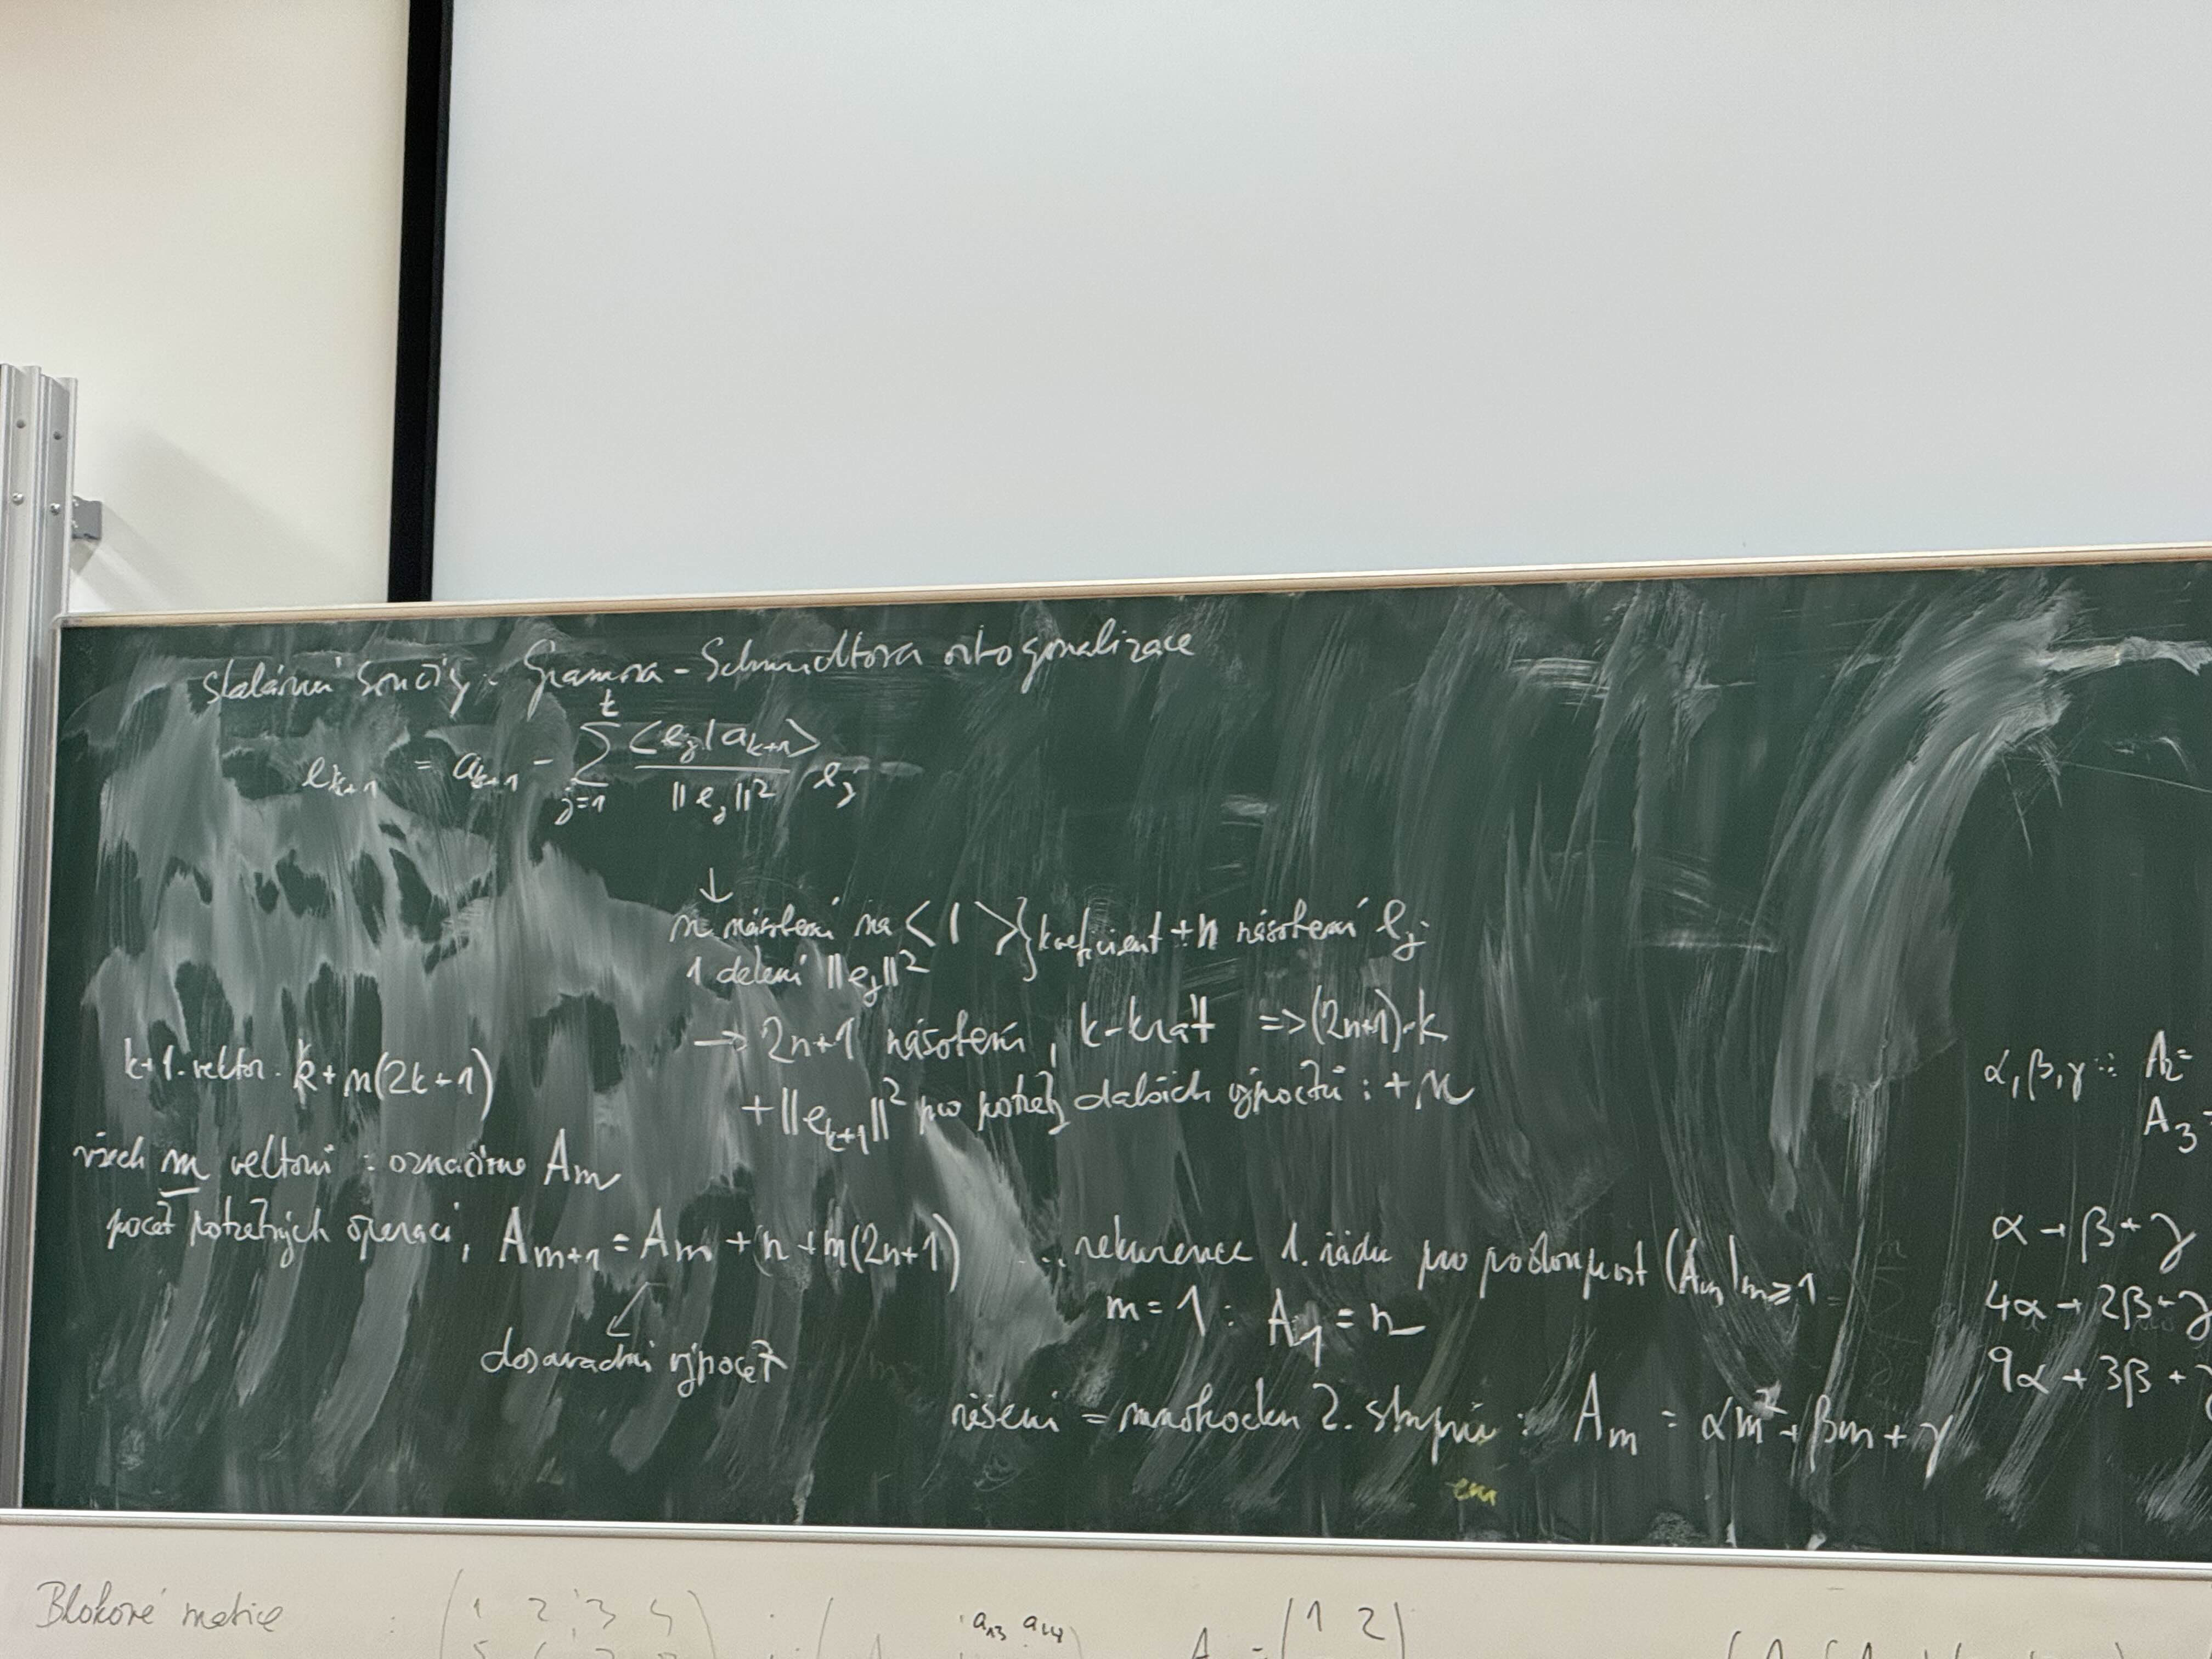 Skalární součiny: Gramova-Schmidtova ortogonalizace
e_{k+1} = a_{k+1} - \sum_{j=1}^{k} \frac{<e_j|a_{k+1}>}{||e_j||^2} e_j
↓
n násobení na < | > } koeficient + n násobení e_j
1 dělení ||e_j||^2
→ 2n+1 násobení, k-krát => (2n+1)·k
+ ||e_{k+1}||^2 pro potřeby dalších výpočtů : + n
k+1. vektor: k+n(2k+1)
všech m vektorů : označíme A_m
počet potřebných operací, A_{m+1} = A_m + n + m(2n+1) ... rekurence 1. řádu pro posloupnost (A_m)_{m≥1}
dosavadní výpočet
m=1: A_1 = n
řešení = mnohočlen 2. stupně : A_m = αm^2 + βm + γ
em
α, β, γ : A_2=
A_3=
α + β + γ
4α + 2β + γ
9α + 3β + γ
Blokové matice : ( 1 2 3 4 ) a_{13} a_{14} A = ( 1 2 )